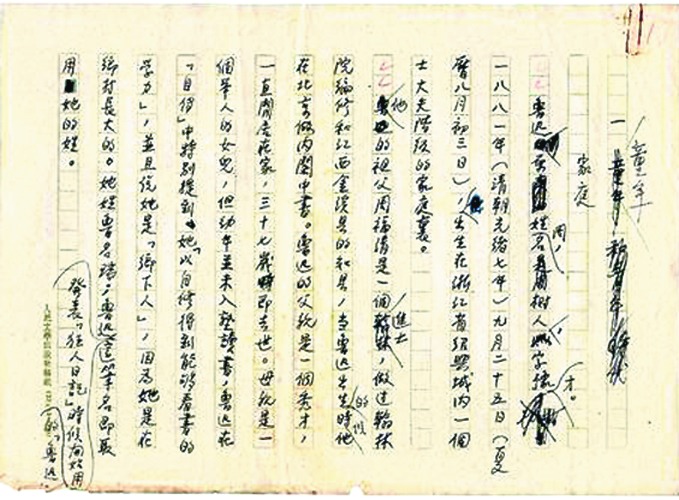 一 童年
家庭
魯迅姓周,名樹人,字豫才。
一八八一年(清朝光緒七年)九月二十五日(夏
曆八月初三日),出生在浙江省紹興城內一個
士大夫階級的家庭裏。
他的祖父周福清是一個進士,做過翰林
院編修和江西金谿縣的知縣,當魯迅出生的時候他
在北京做內閣中書。魯迅的父親是一個秀才,
一直閒居在家,三十七歲時即去世。母親是一
個舉人的女兒,但幼年並未入塾讀書,魯迅在
「自傳」中特別提到她「以自修得到能夠看書的
學力」,並且說她是「鄉下人」,因為她是在
鄉村長大的。她姓魯名瑞,魯迅這筆名即取
用她的姓。
發表「狂人日記」時候開始用
的「魯迅
人民文學出版社稿紙